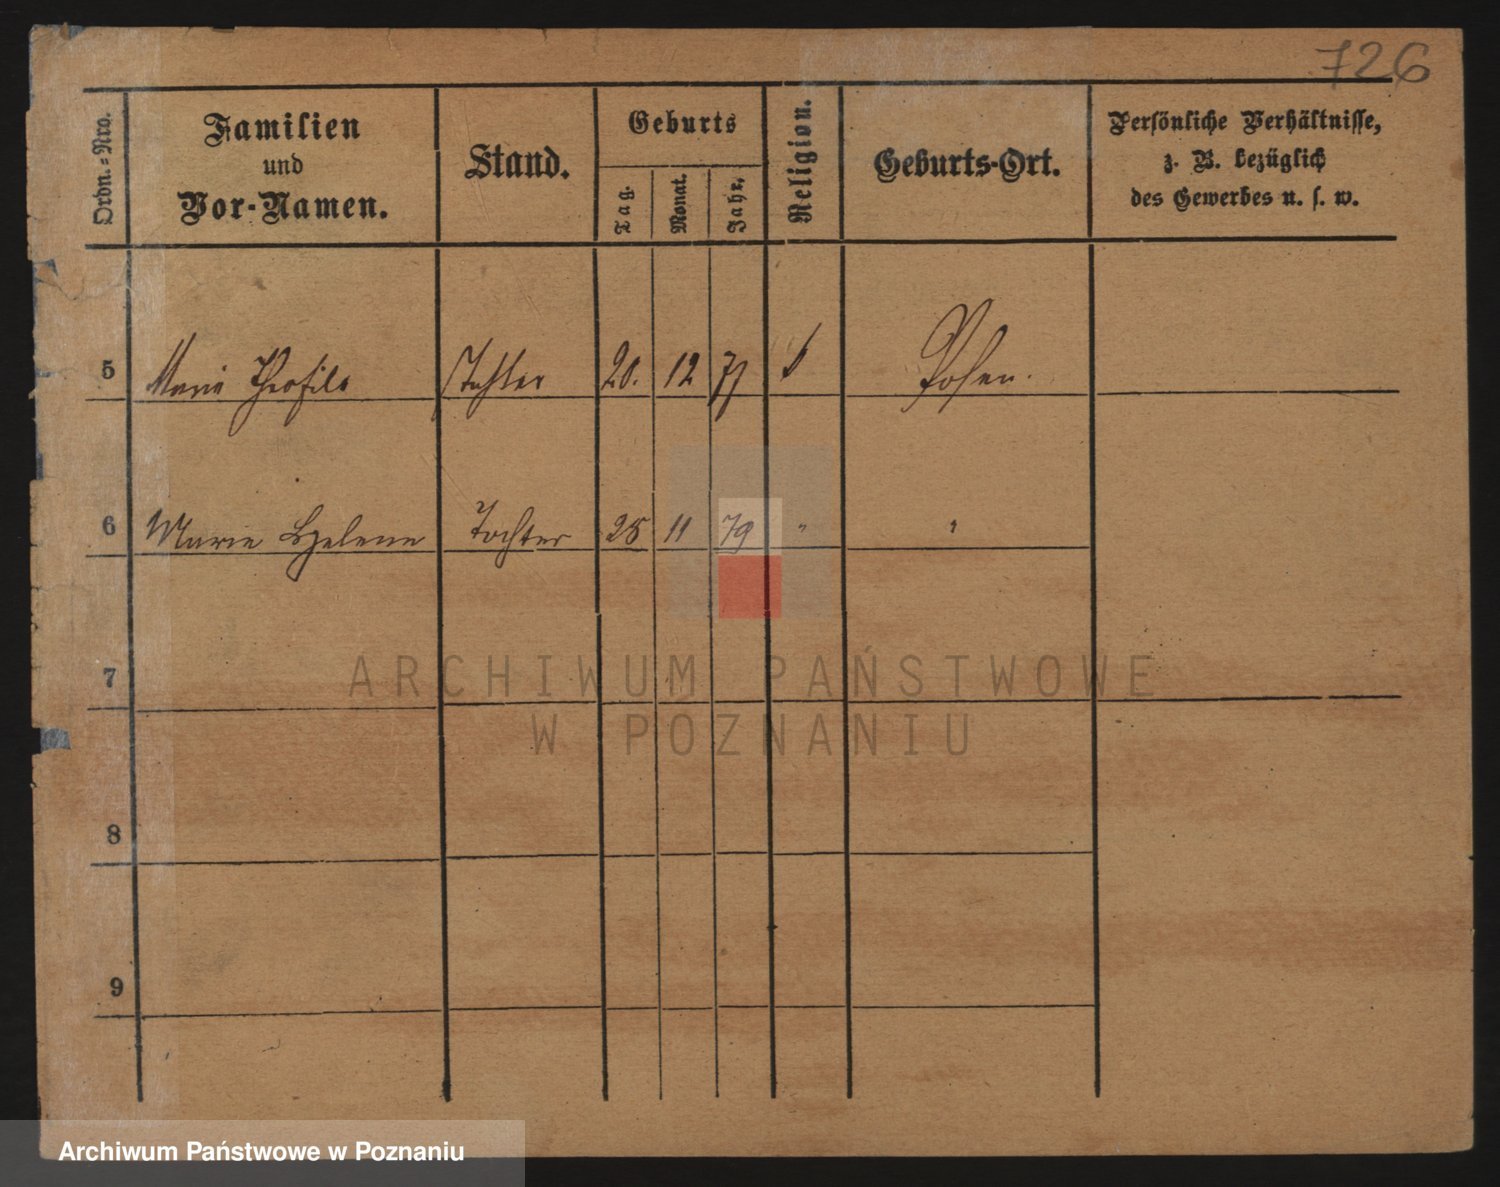 726
Ordn.-Nro.
Familien
und
Vor-Namen.
Stand.
Geburts
Tag.
Monat.
Jahr.
Religion.
Geburts-Ort.
Persönliche Verhältnisse,
z. B. bezüglich
des Gewerbes u. s. w.
5 Marie Theofile Tochter 20. 12 77 Posen.
6 Marie Helene Tochter 25 11 79 " "
7
8
9
ARCHIWUM PAŃSTWOWE
W POZNANIU
Archiwum Państwowe w Poznaniu